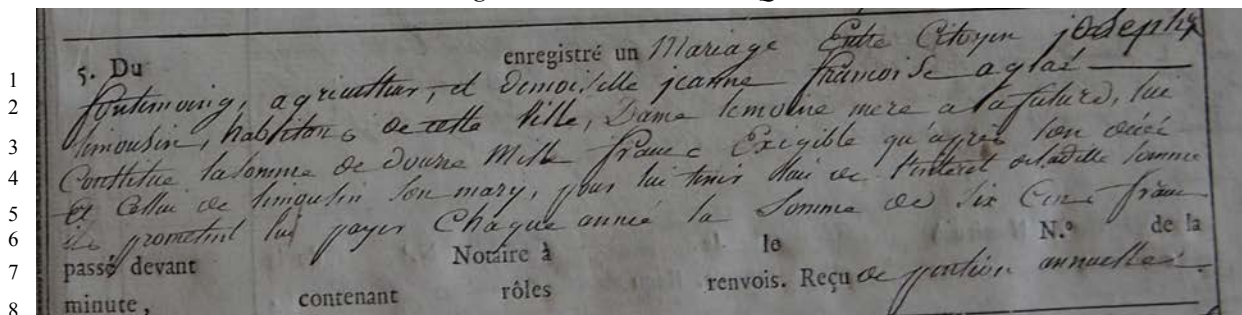 5. Du enregistré un Mariage Entre Citoyen joseph
1 fontemoing, agriculteur, et Demoiselle jeanne framoise aglaé
2 limousin, habitons de cette Ville, Dame lemoine mere a la future, lui
3 Constitue la somme de douze Mille franc Exigible qu'après son décé
4 et Cellui de limousin son mary, pour lui tenir lieu de l'interet de laditte somme
5 ils prometent lui payer Chaque année la Somme de Six Cens franc
6 passé devant Notaire à le N.º de la
7 minute, contenant rôles renvois. Reçu de pention annuelle.
8